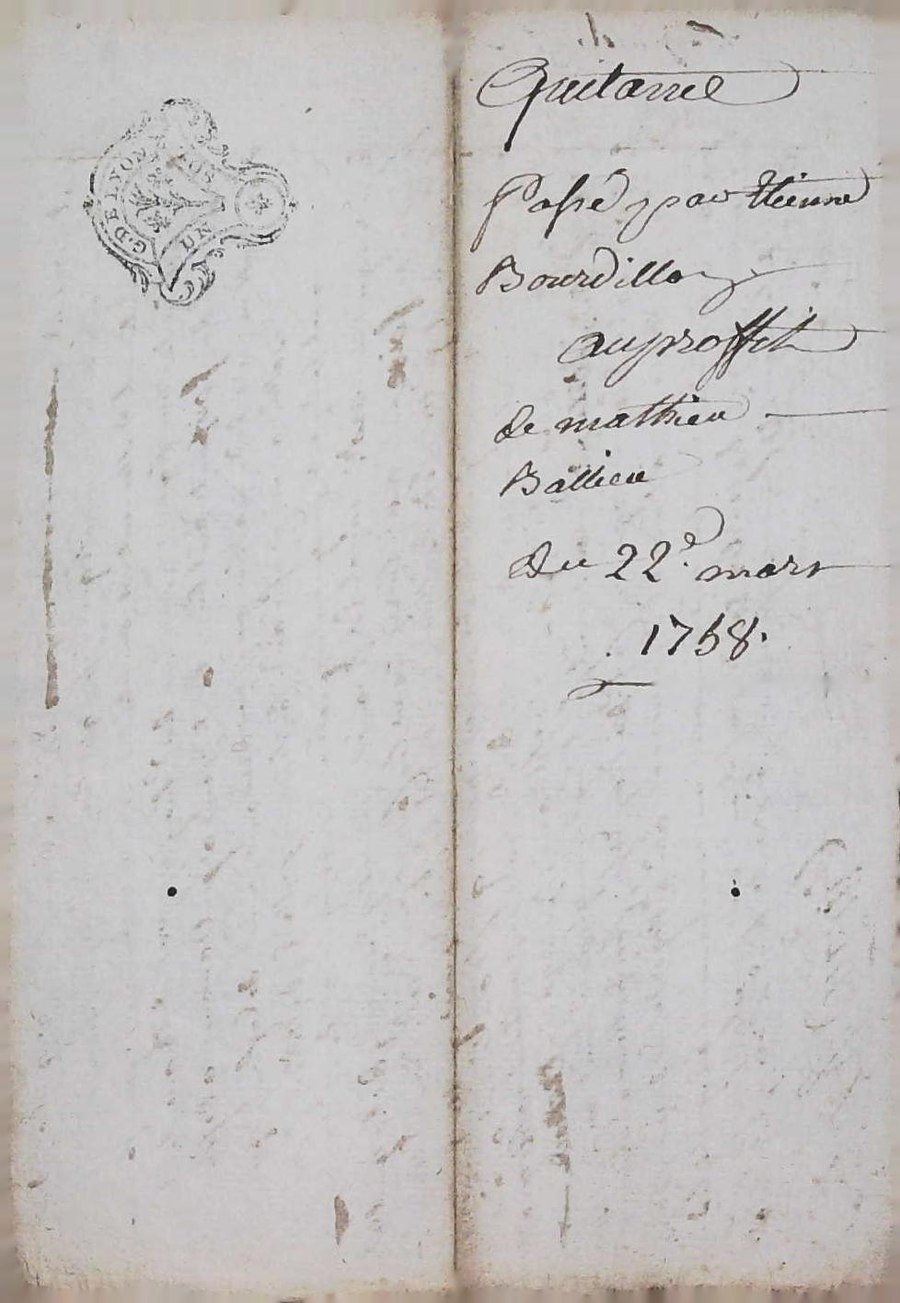 G. DE LYON
UN SOL
Quitance
Passé par Etienne
Bourdillon
au proffit
de mathieu
Ballieu
du 22e. mars
1758.